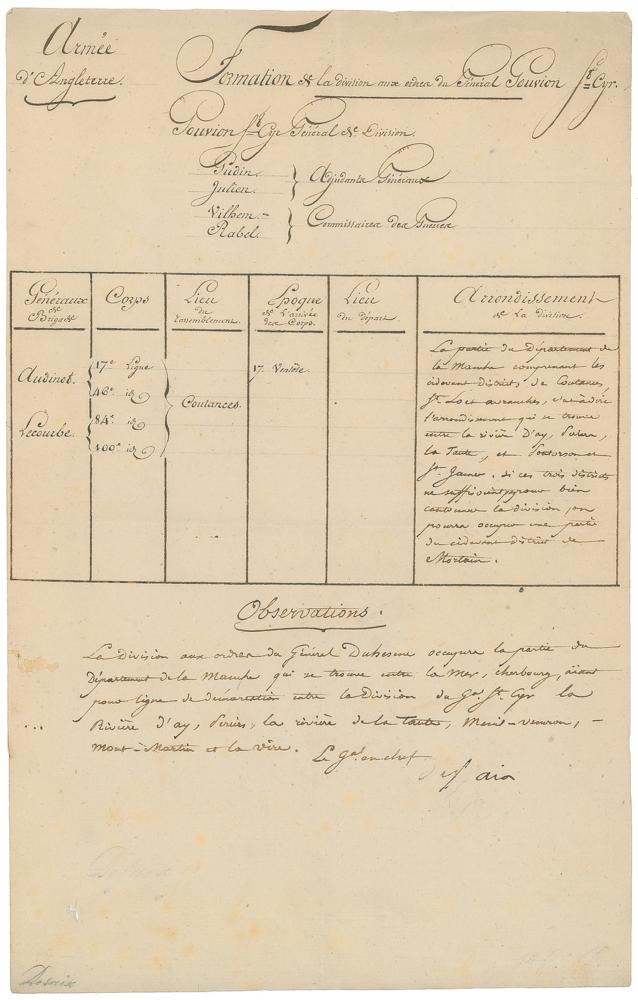 Armée
d'Angleterre.
Formation de la division aux ordres du Général Gouvion St Cyr.
Gouvion St Cyr Général de Division.
Gudin.
Julien.
} Adjudants Généraux
Vilhem.
Rabel.
} Commissaires des Guerres
Généraux
de
Brigade
Corps
Lieu
du
rassemblement.
Epoque
de l'arrivée
des Corps.
Lieu
du départ.
Arrondissement
de la division.
Audinot.
Lecourbe.
17e Ligne
46e id
84e id
100e id
Coutances.
17. Ventôse.
La partie du Département de
la Manche comprenant les
cidevant districts de Coutances,
St Lo et avranches, c'est à dire
l'arrondissement qui se trouve
entre la rivière d'ay, Periers,
la Taute, et Pontorson et
St James. si ces trois districts
ne suffisoient pas pour bien
cantonner la division, on
pourra occuper une partie
du cidevant district de
Mortain.
Observations.
La division aux ordres du Général Duhesme occupera la partie du
Département de la Manche qui se trouve entre la Mer, cherbourg, aiant
pour ligne de démarcation entre la Division du Gal St Cyr la
Rivière d'ay, Periers, la rivière de la Taute, Menil-venron, -
Mont-Martin et la vire.
Le Gal en chef
Desaix
Desaix